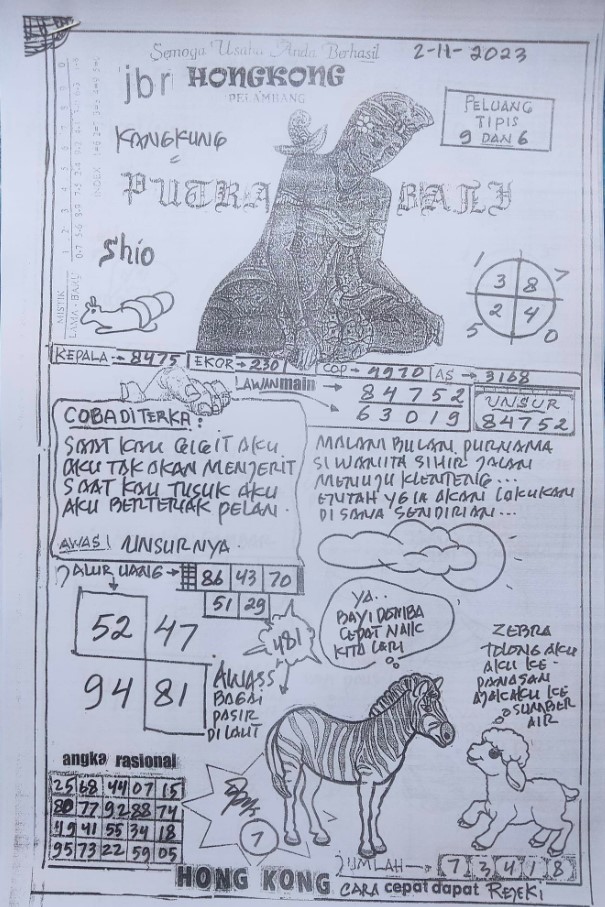 Semoga Usaha Anda Berhasil
2-11-2023
jbr HONGKONG
PELAMBANG
PELUANG
TIPIS
9 DAN 6
KANGKUNG
PUTRA BALI
Shio
MISTIK
LAMA - BARU
INDEX
1
7
3 8
2 4
5
0
KEPALA → 8475
EKOR → 230
COP → 4970
AS → 3168
LAWAN main
84752
63019
UNSUR
84752
COBA DITERKA:
SAAT KAU GIGIT AKU
AKU TAK AKAN MENJERIT
SAAT KAU TUSUK AKU
AKU BERTERIAK PELAN.
AWAS! UNSURNYA.
MALAM BULAN PURNAMA
SI WANITA SIHIR JALAN
MENUJU KLENTENG...
ENTAH YG IA AKAN LAKUKAN
DI SANA SENDIRIAN...
JALUR UANG → 86 43 70
51 29
52 47
94 81
481
AWASS
BAGAI
PASIR
DI LAUT
YA..
BAYI DOMBA
CEPAT NAIK
KITA LARI
ZEBRA
TOLONG AKU
AKU KE-
PANASAN
AJAK AKU KE
SUMBER
AIR
angka rasional
25 68 44 07 15
80 77 92 88 74
49 41 55 34 18
95 73 22 59 05
7
JUMLAH → 7 3 4 1 8
HONG KONG CARA cepat dapat REJEKI